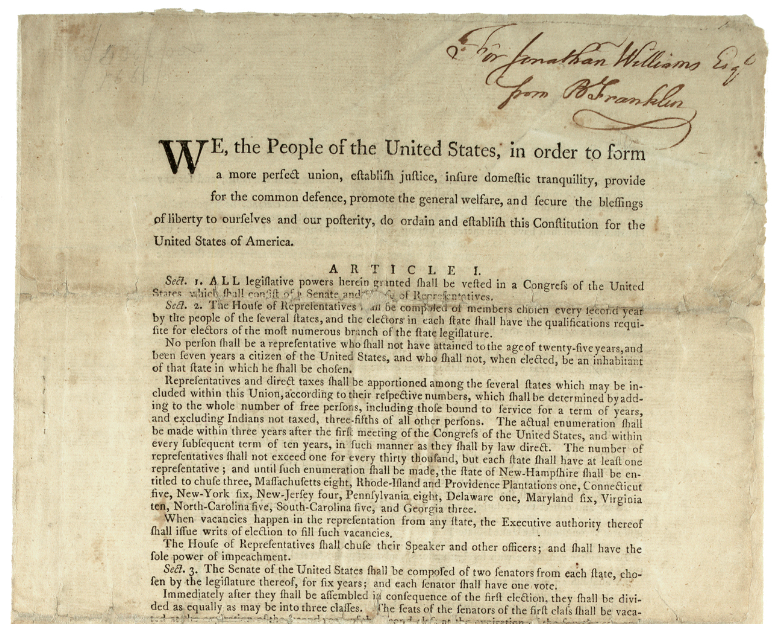 For Jonathan Williams Esqr
from B Franklin
WE, the People of the United States, in order to form
a more perfect union, eſtabliſh juſtice, inſure domeſtic tranquility, provide
for the common defence, promote the general welfare, and ſecure the bleſſings
of liberty to ourſelves and our poſterity, do ordain and eſtabliſh this Conſtitution for the
United States of America.
ARTICLE I.
Sect. 1. ALL legiſlative powers herein granted ſhall be veſted in a Congreſs of the United
States, which ſhall conſiſt of a Senate and Houſe of Repreſentatives.
Sect. 2. The Houſe of Repreſentatives ſhall be compoſed of members choſen every ſecond year
by the people of the ſeveral ſtates, and the electors in each ſtate ſhall have the qualifications requi-
ſite for electors of the moſt numerous branch of the ſtate legiſlature.
No perſon ſhall be a repreſentative who ſhall not have attained to the age of twenty-five years, and
been ſeven years a citizen of the United States, and who ſhall not, when elected, be an inhabitant
of that ſtate in which he ſhall be choſen.
Repreſentatives and direct taxes ſhall be apportioned among the ſeveral ſtates which may be in-
cluded within this Union, according to their reſpective numbers, which ſhall be determined by add-
ing to the whole number of free perſons, including thoſe bound to ſervice for a term of years,
and excluding Indians not taxed, three-fifths of all other perſons. The actual enumeration ſhall
be made within three years after the firſt meeting of the Congreſs of the United States, and within
every ſubſequent term of ten years, in ſuch manner as they ſhall by law direct. The number of
repreſentatives ſhall not exceed one for every thirty thouſand, but each ſtate ſhall have at leaſt one
repreſentative ; and until ſuch enumeration ſhall be made, the ſtate of New-Hampſhire ſhall be en-
titled to chuſe three, Maſſachuſetts eight, Rhode-Iſland and Providence Plantations one, Connecticut
five, New-York ſix, New-Jerſey four, Pennſylvania eight, Delaware one, Maryland ſix, Virginia
ten, North-Carolina five, South-Carolina five, and Georgia three.
When vacancies happen in the repreſentation from any ſtate, the Executive authority thereof
ſhall iſſue writs of election to fill ſuch vacancies.
The Houſe of Repreſentatives ſhall chuſe their Speaker and other officers; and ſhall have the
ſole power of impeachment.
Sect. 3. The Senate of the United States ſhall be compoſed of two ſenators from each ſtate, cho-
ſen by the legiſlature thereof, for ſix years; and each ſenator ſhall have one vote.
Immediately after they ſhall be aſſembled in conſequence of the firſt election, they ſhall be divi-
ded as equally as may be into three claſſes. The ſeats of the ſenators of the firſt claſs ſhall be vaca-